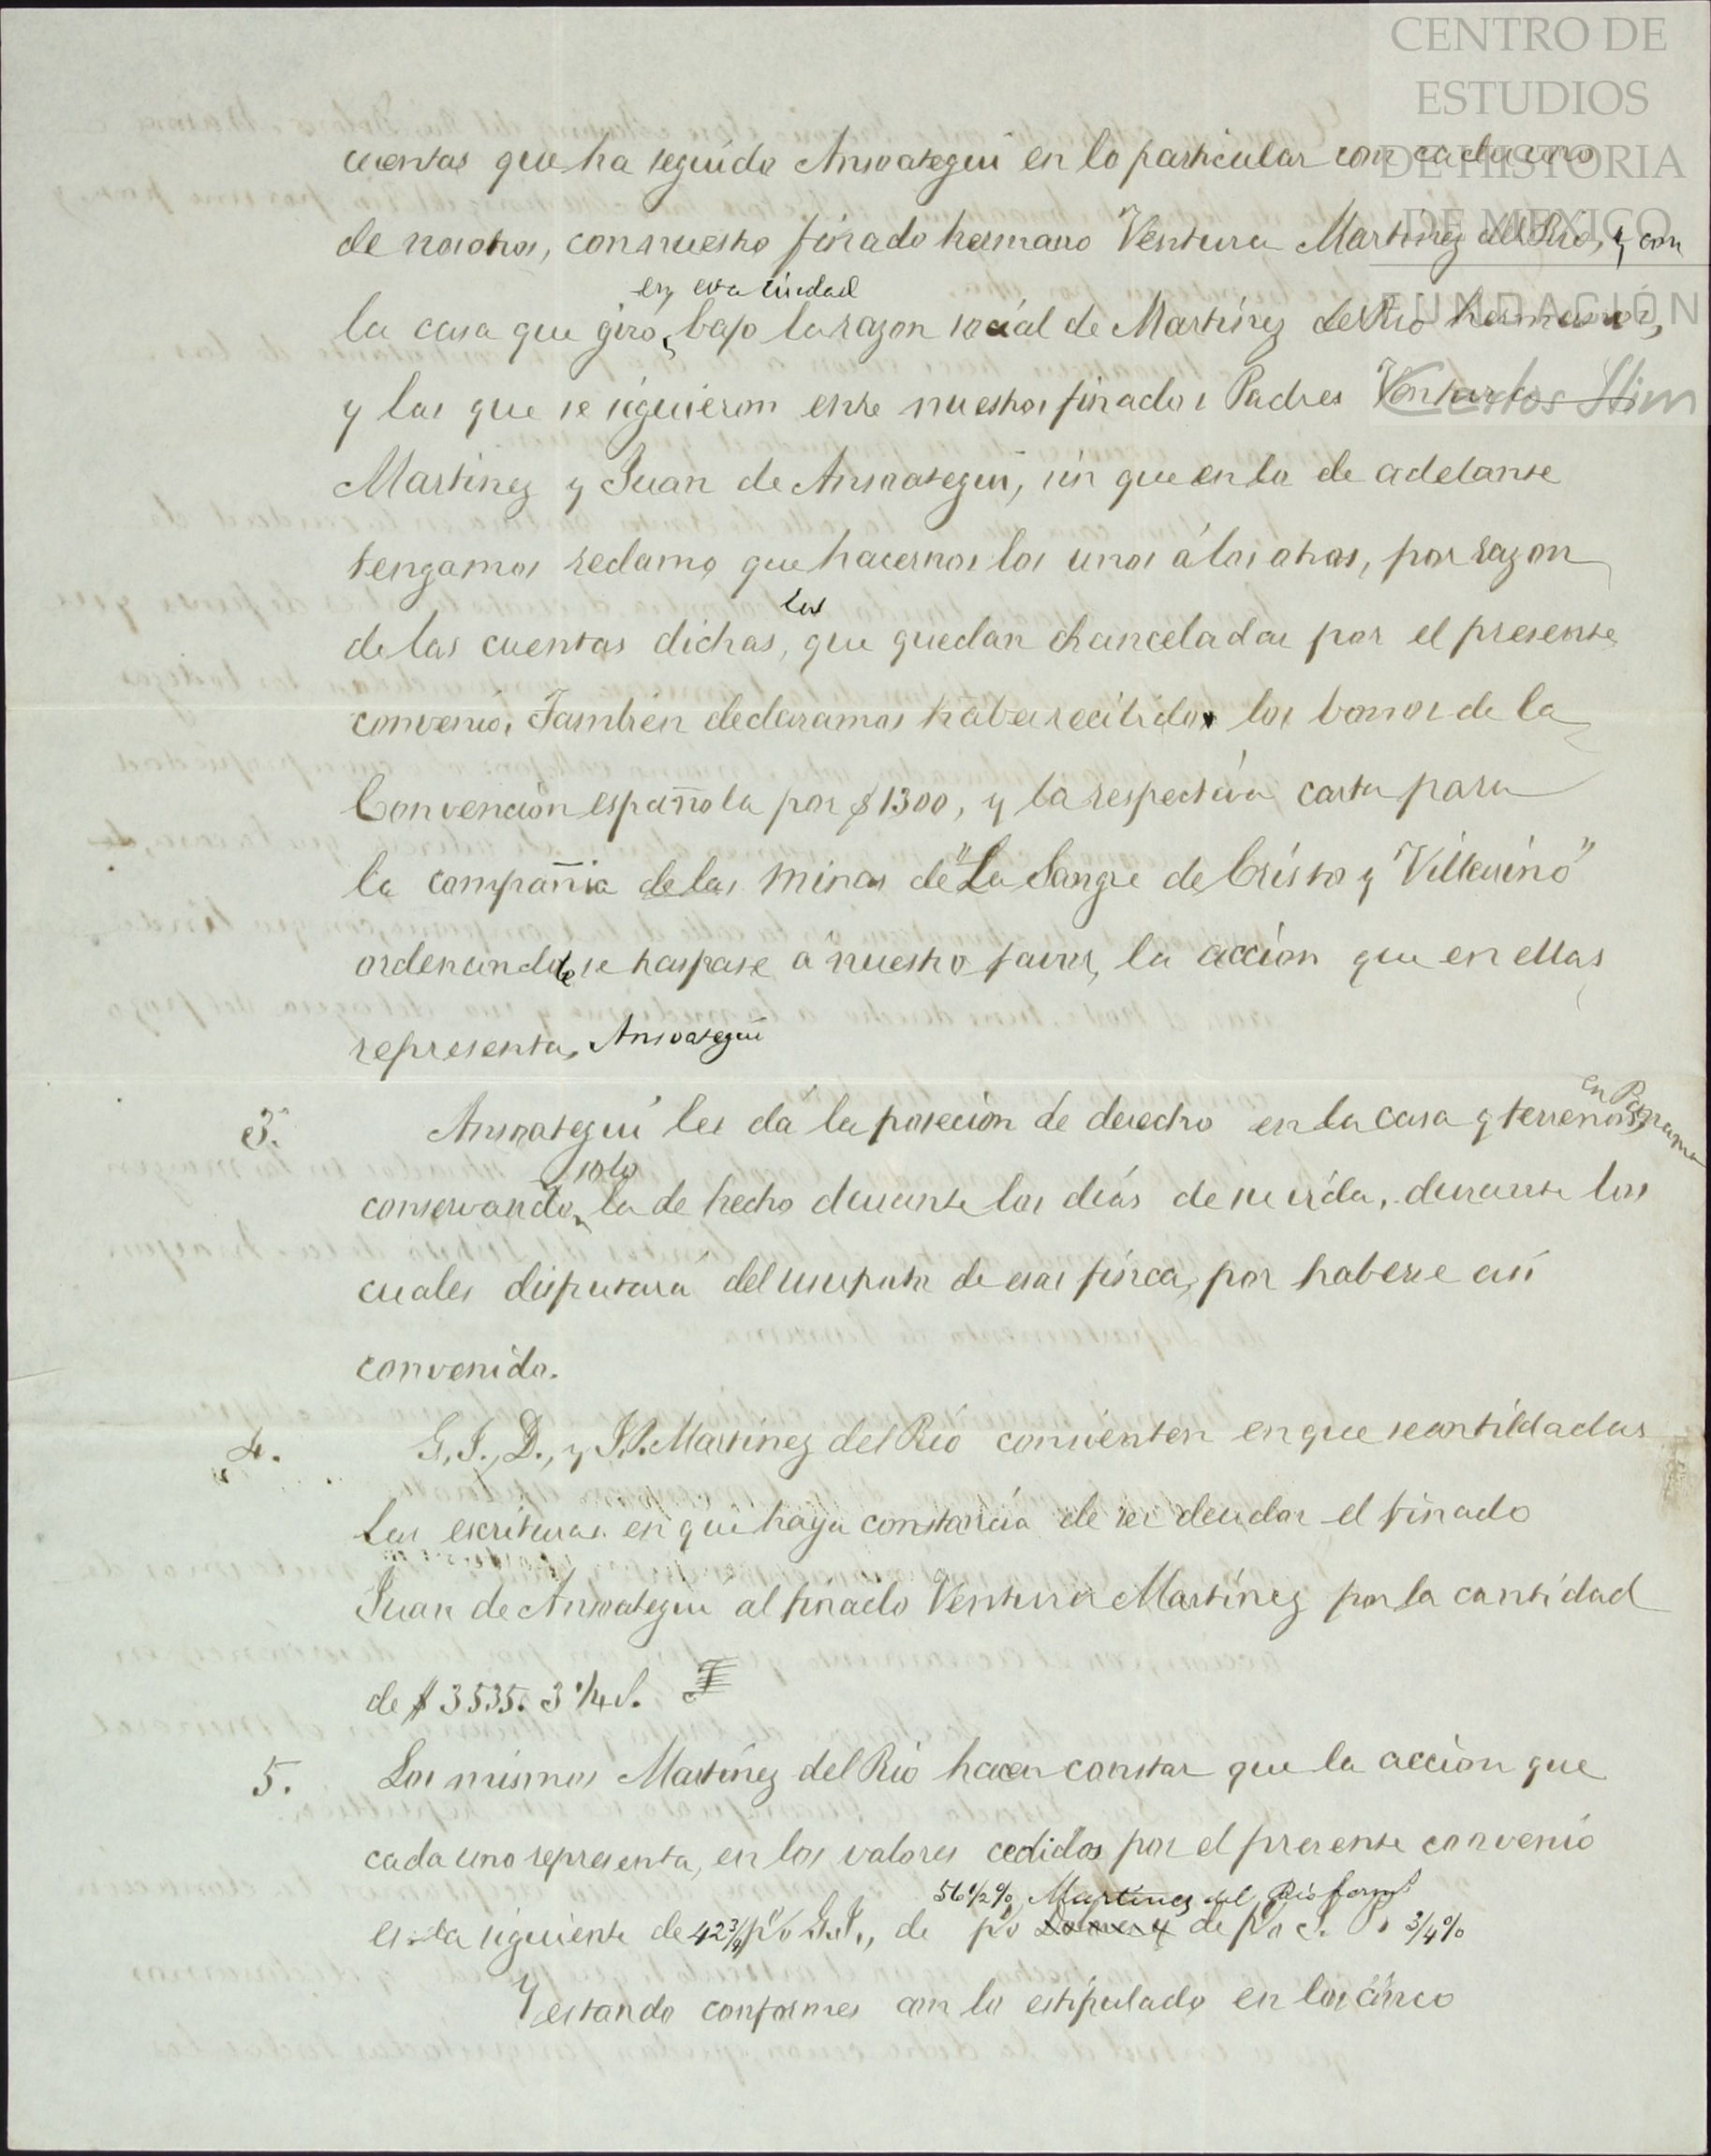 CENTRO DE
ESTUDIOS
DE HISTORIA
DE MEXICO
FUNDACIÓN
Carlos Slim
cuentas que ha seguido Ansoategui en lo particular con cada uno
de nosotros, con nuestro finado hermano Ventura Martinez del Rio, y con
en esta ciudad
la casa que giró, bajo la razon social de Martínez del Rio hermanos,
y las que se siguieron entre nuestros finados Padres Ventura
Martinez y Juan de Ansoategui, sin que en lo de adelante
tengamos reclamo que hacernos los unos á los otros, por razon
las
de las cuentas dichas, que quedan chanceladas por el presente
convenio. Tambien declaramos haber recibido los bonos de la
Convencion española por $1300, y la respectiva carta para
la compañia de las minas de "La Sangre de Cristo y Villarino"
ordenandole se traspase á nuestro favor, la accion que en ellas
representa, Ansoategui
3. Ansoategui les da la posecion de derecho en la casa y terrenos en Panama
solo
conservando, la de hecho durante los dias de su vida, durante los
cuales disfrutará del usufruto de esas finca, por haberse asi
convenido.
4. G, J., D., y J.P. Martinez del Rio consienten en que sean tildadas
las escrituras en que haya constancia de ser deudor el finado
Juan de Ansoategui al finado Ventura Martínez por la cantidad
de $ 3535. 3 1/4 r.
5. Los mismos Martínez del Rio hacen constar que la accion que
cada uno representa, en los valores cedidos por el presente convenio
56 1/2 % Martinez del Rio herms
es la siguiente de 42 3/4 p% G. J., de p% de p% J. P. 3/4 %
Y estando conformes con lo estipulado en los cinco